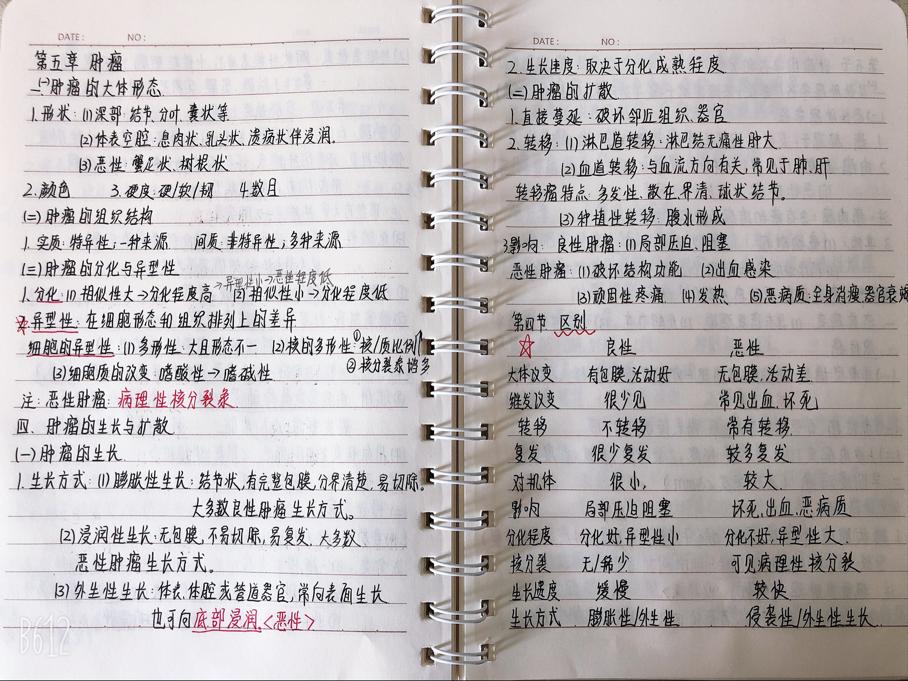 DATE: NO:
第五章 肿瘤
一、(一)肿瘤的大体形态
1.形状: (1)深部:结节、分叶、囊状等
(2)体表空腔:息肉状、乳头状、溃疡状伴浸润.
(3)恶性:蟹足状、树根状
2.颜色 3.硬度:硬/软/韧 4.数目
(二)肿瘤的组织结构
1.实质:特异性;一种来源 间质:非特异性;多种来源
(三)肿瘤的分化与异型性
→异型性小→恶性程度低
1.分化:(1)相似性大→分化程度高 (2)相似性小→分化程度低
☆异型性:在细胞形态和组织排列上的差异
细胞的异型性:(1)多形性:大且形态不一 (2)核的多形性:①核/质比例↑
(3)细胞质的改变:嗜酸性→嗜碱性 ②核分裂象增多
注:恶性肿瘤:病理性核分裂象
四、肿瘤的生长与扩散
(一)肿瘤的生长
1.生长方式:(1)膨胀性生长:结节状,有完整包膜,分界清楚,易切除.
大多数良性肿瘤生长方式。
(2)浸润性生长:无包膜,不易切除,易复发,大多数
恶性肿瘤生长方式。
(3)外生性生长:体表、体腔或管道器官,常向表面生长
也可向底部浸润<恶性>
B612
DATE: NO:
2.生长速度:取决于分化成熟程度
(二)肿瘤的扩散
1.直接蔓延:破坏邻近组织、器官
2.转移:(1)淋巴道转移:淋巴结无痛性肿大
(2)血道转移:与血流方向有关,常见于肺、肝
转移瘤特点:多发性、散在界清、球状结节。
(3)种植性转移:腹水形成
3.影响:良性肿瘤:(1)局部压迫、阻塞
恶性肿瘤:(1)破坏结构功能 (2)出血感染
(3)顽固性疼痛 (4)发热 (5)恶病质:全身消瘦、器官衰竭
第四节 区别
☆ 良性 恶性
大体改变 有包膜,活动好 无包膜,活动差
继发改变 很少见 常见出血、坏死
转移 不转移 常有转移
复发 很少复发 较多复发
对机体 很小, 较大,
影响 局部压迫阻塞 坏死,出血,恶病质
分化程度 分化好,异型性小 分化不好,异型性大
核分裂 无/稀少 可见病理性核分裂
生长速度 缓慢 较快
生长方式 膨胀性/外生性 侵袭性/外生性生长